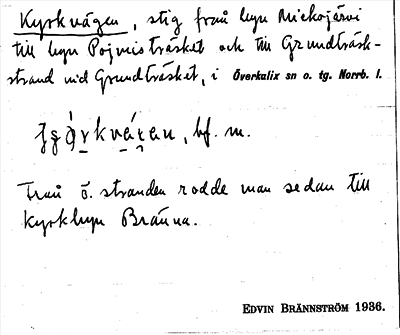 Kyrkvägen, stig från byn Miekojärvi
till byn Pojvisträsket och till Grundträsk-
strand vid Grundträsket, i Överkalix sn o. tg. Norrb. l.
bf. m.
Från ö. stranden rodde man sedan till
kyrkbyn Bränna.
EDVIN BRÄNNSTRÖM 1936.